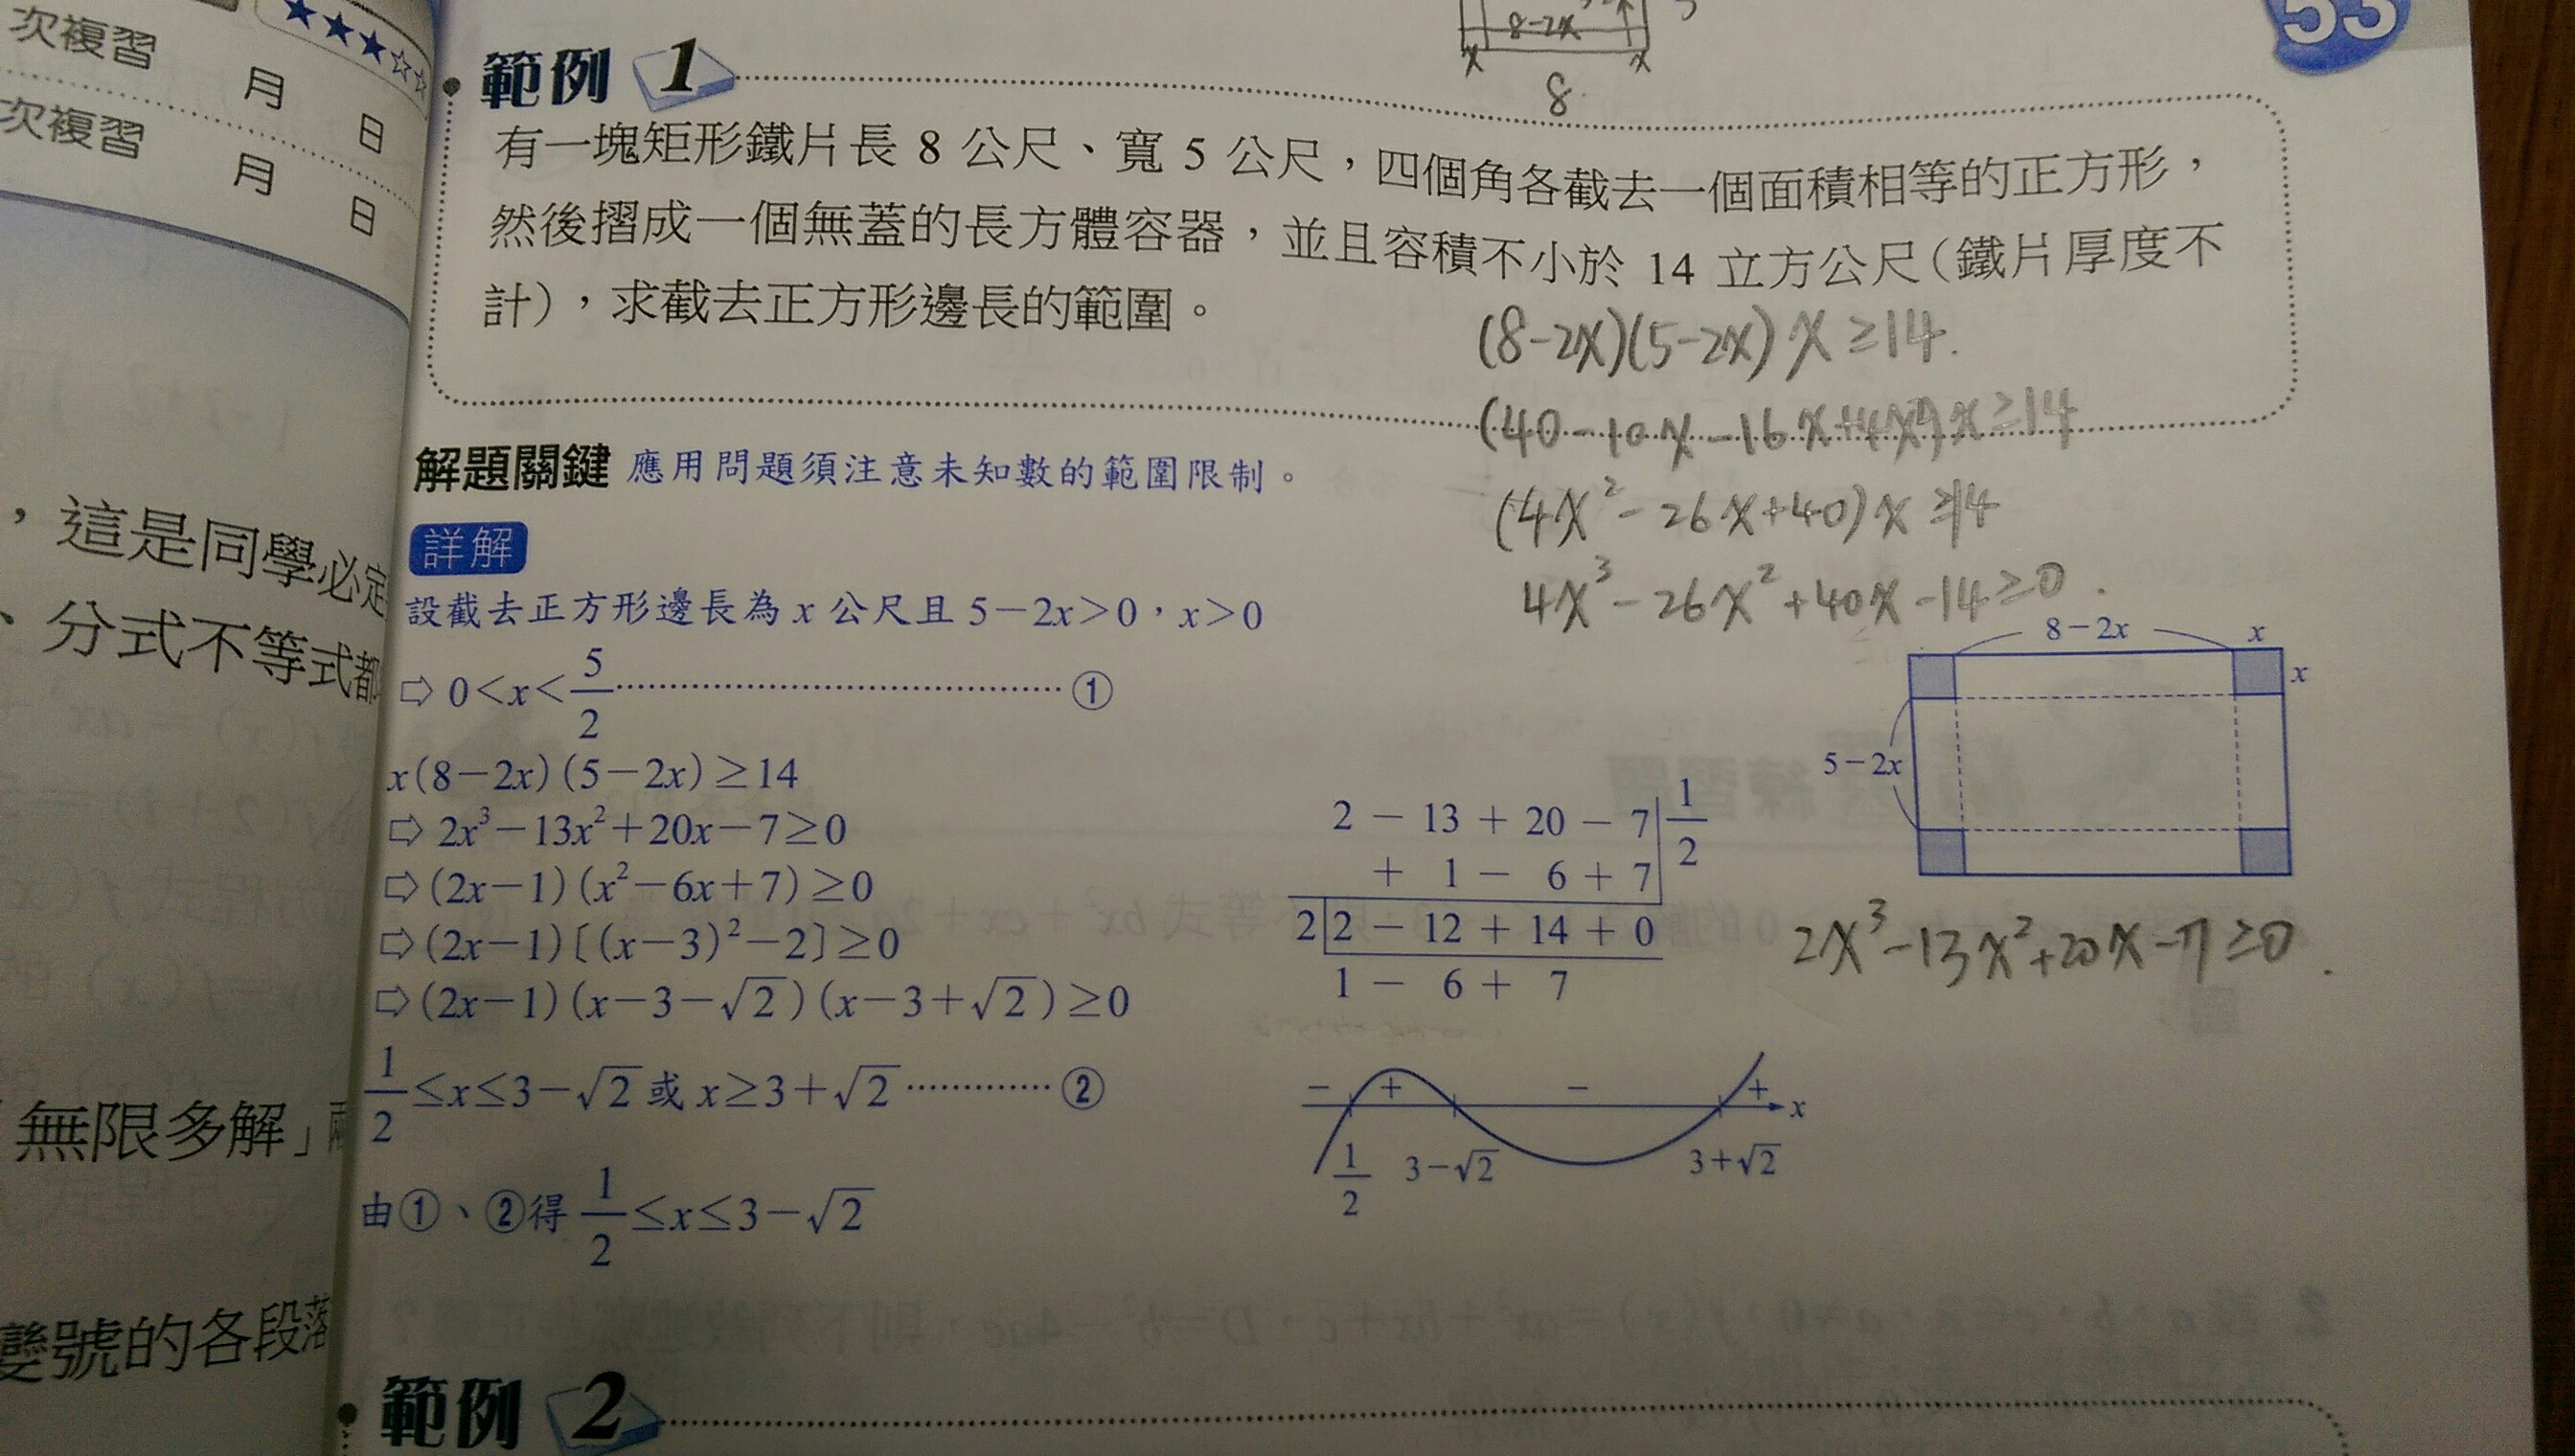 次複習
月 日
次複習
月 日
，這是同學必定
、分式不等式都
「無限多解」
變號的各段落
53
8-2x
x x
8
範例 1
有一塊矩形鐵片長 8 公尺、寬 5 公尺，四個角各截去一個面積相等的正方形，
然後摺成一個無蓋的長方體容器，並且容積不小於 14 立方公尺（鐵片厚度不
計），求截去正方形邊長的範圍。
(8-2x)(5-2x)x≥14.
(40-10x-16x+4x²)x≥14
(4x²-26x+40)x≥14
4x³-26x²+40x-14≥0.
解題關鍵 應用問題須注意未知數的範圍限制。
詳解
設截去正方形邊長為 x 公尺且 5-2x>0，x>0
⇨ 0<x<5/2 ……………………………… ①
x(8-2x)(5-2x)≥14
⇨ 2x³-13x²+20x-7≥0
⇨ (2x-1)(x²-6x+7)≥0
⇨ (2x-1)[(x-3)²-2]≥0
⇨ (2x-1)(x-3-√2)(x-3+√2)≥0
1/2≤x≤3-√2 或 x≥3+√2 ………… ②
由①、②得 1/2≤x≤3-√2
8-2x x
x
5-2x
2 - 13 + 20 - 7 | 1/2
+ 1 - 6 + 7
2 | 2 - 12 + 14 + 0
1 - 6 + 7
2x³-13x²+20x-7≥0.
- + - + x
1/2 3-√2 3+√2
範例 2